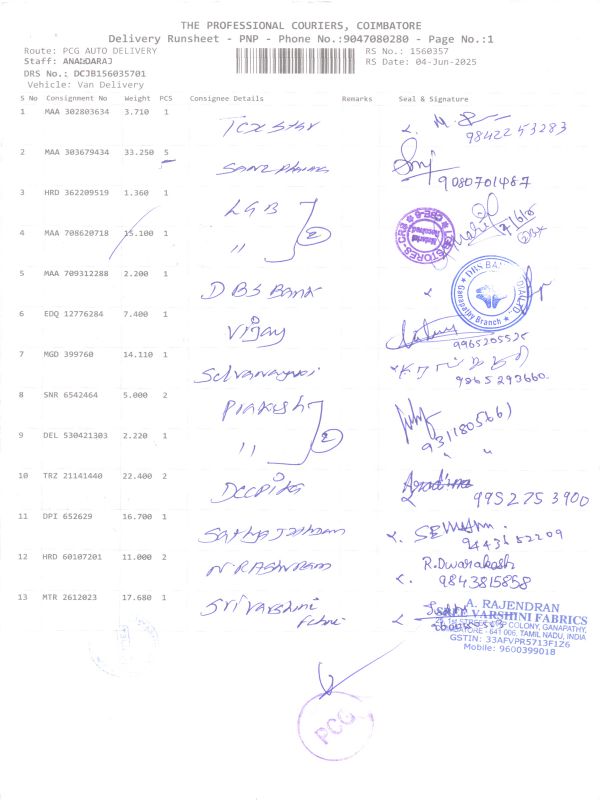 THE PROFESSIONAL COURIERS, COIMBATORE
Delivery Runsheet - PNP - Phone No.:9047080280 - Page No.:1
Route: PCG AUTO DELIVERY RS No.: 1560357
Staff: ANANDARAJ RS Date: 04-Jun-2025
DRS No.: DCJB156035701
Vehicle: Van Delivery
S No Consignment No Weight PCS Consignee Details Remarks Seal & Signature
1 MAA 302803634 3.710 1 Tex Star 9842253283
2 MAA 303679434 33.250 5 9080701487
3 HRD 362209519 1.360 1 LGB
2
4 MAA 708620718 15.100 1 "
STORES-CRS
5 MAA 709312288 2.200 1 DBS Bank
DBS BANK
Ganapathy Branch
6 EDQ 12776284 7.400 1 Vijay
9965205525
7 MGD 399760 14.110 1 Selvanayaki
9865293660
8 SNR 6542464 5.000 2 Prakash
2
9311805661
9 DEL 530421303 2.220 1 " " "
10 TRZ 21141440 22.400 2 Deepika 9952753900
11 DPI 652629 16.700 1
9443652209
12 HRD 60107201 11.000 2 R.Dwarakash
9843815858
13 MTR 2612023 17.680 1 Sri Varshini
A. RAJENDRAN
VARSHINI FABRICS
COLONY, GANAPATHY,
COIMBATORE - 641 006, TAMIL NADU, INDIA
GSTIN: 33AFVPR5713F1Z6
Mobile: 9600399018
PCG